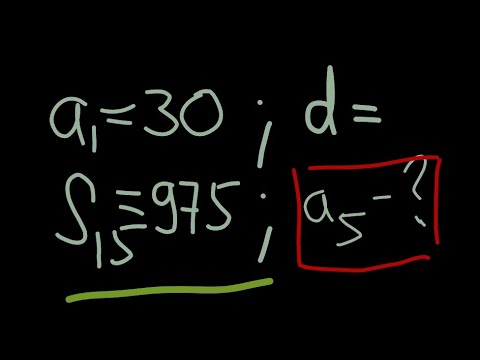 a₁=30 ; d=
S₁₅=975 ; a₅-?